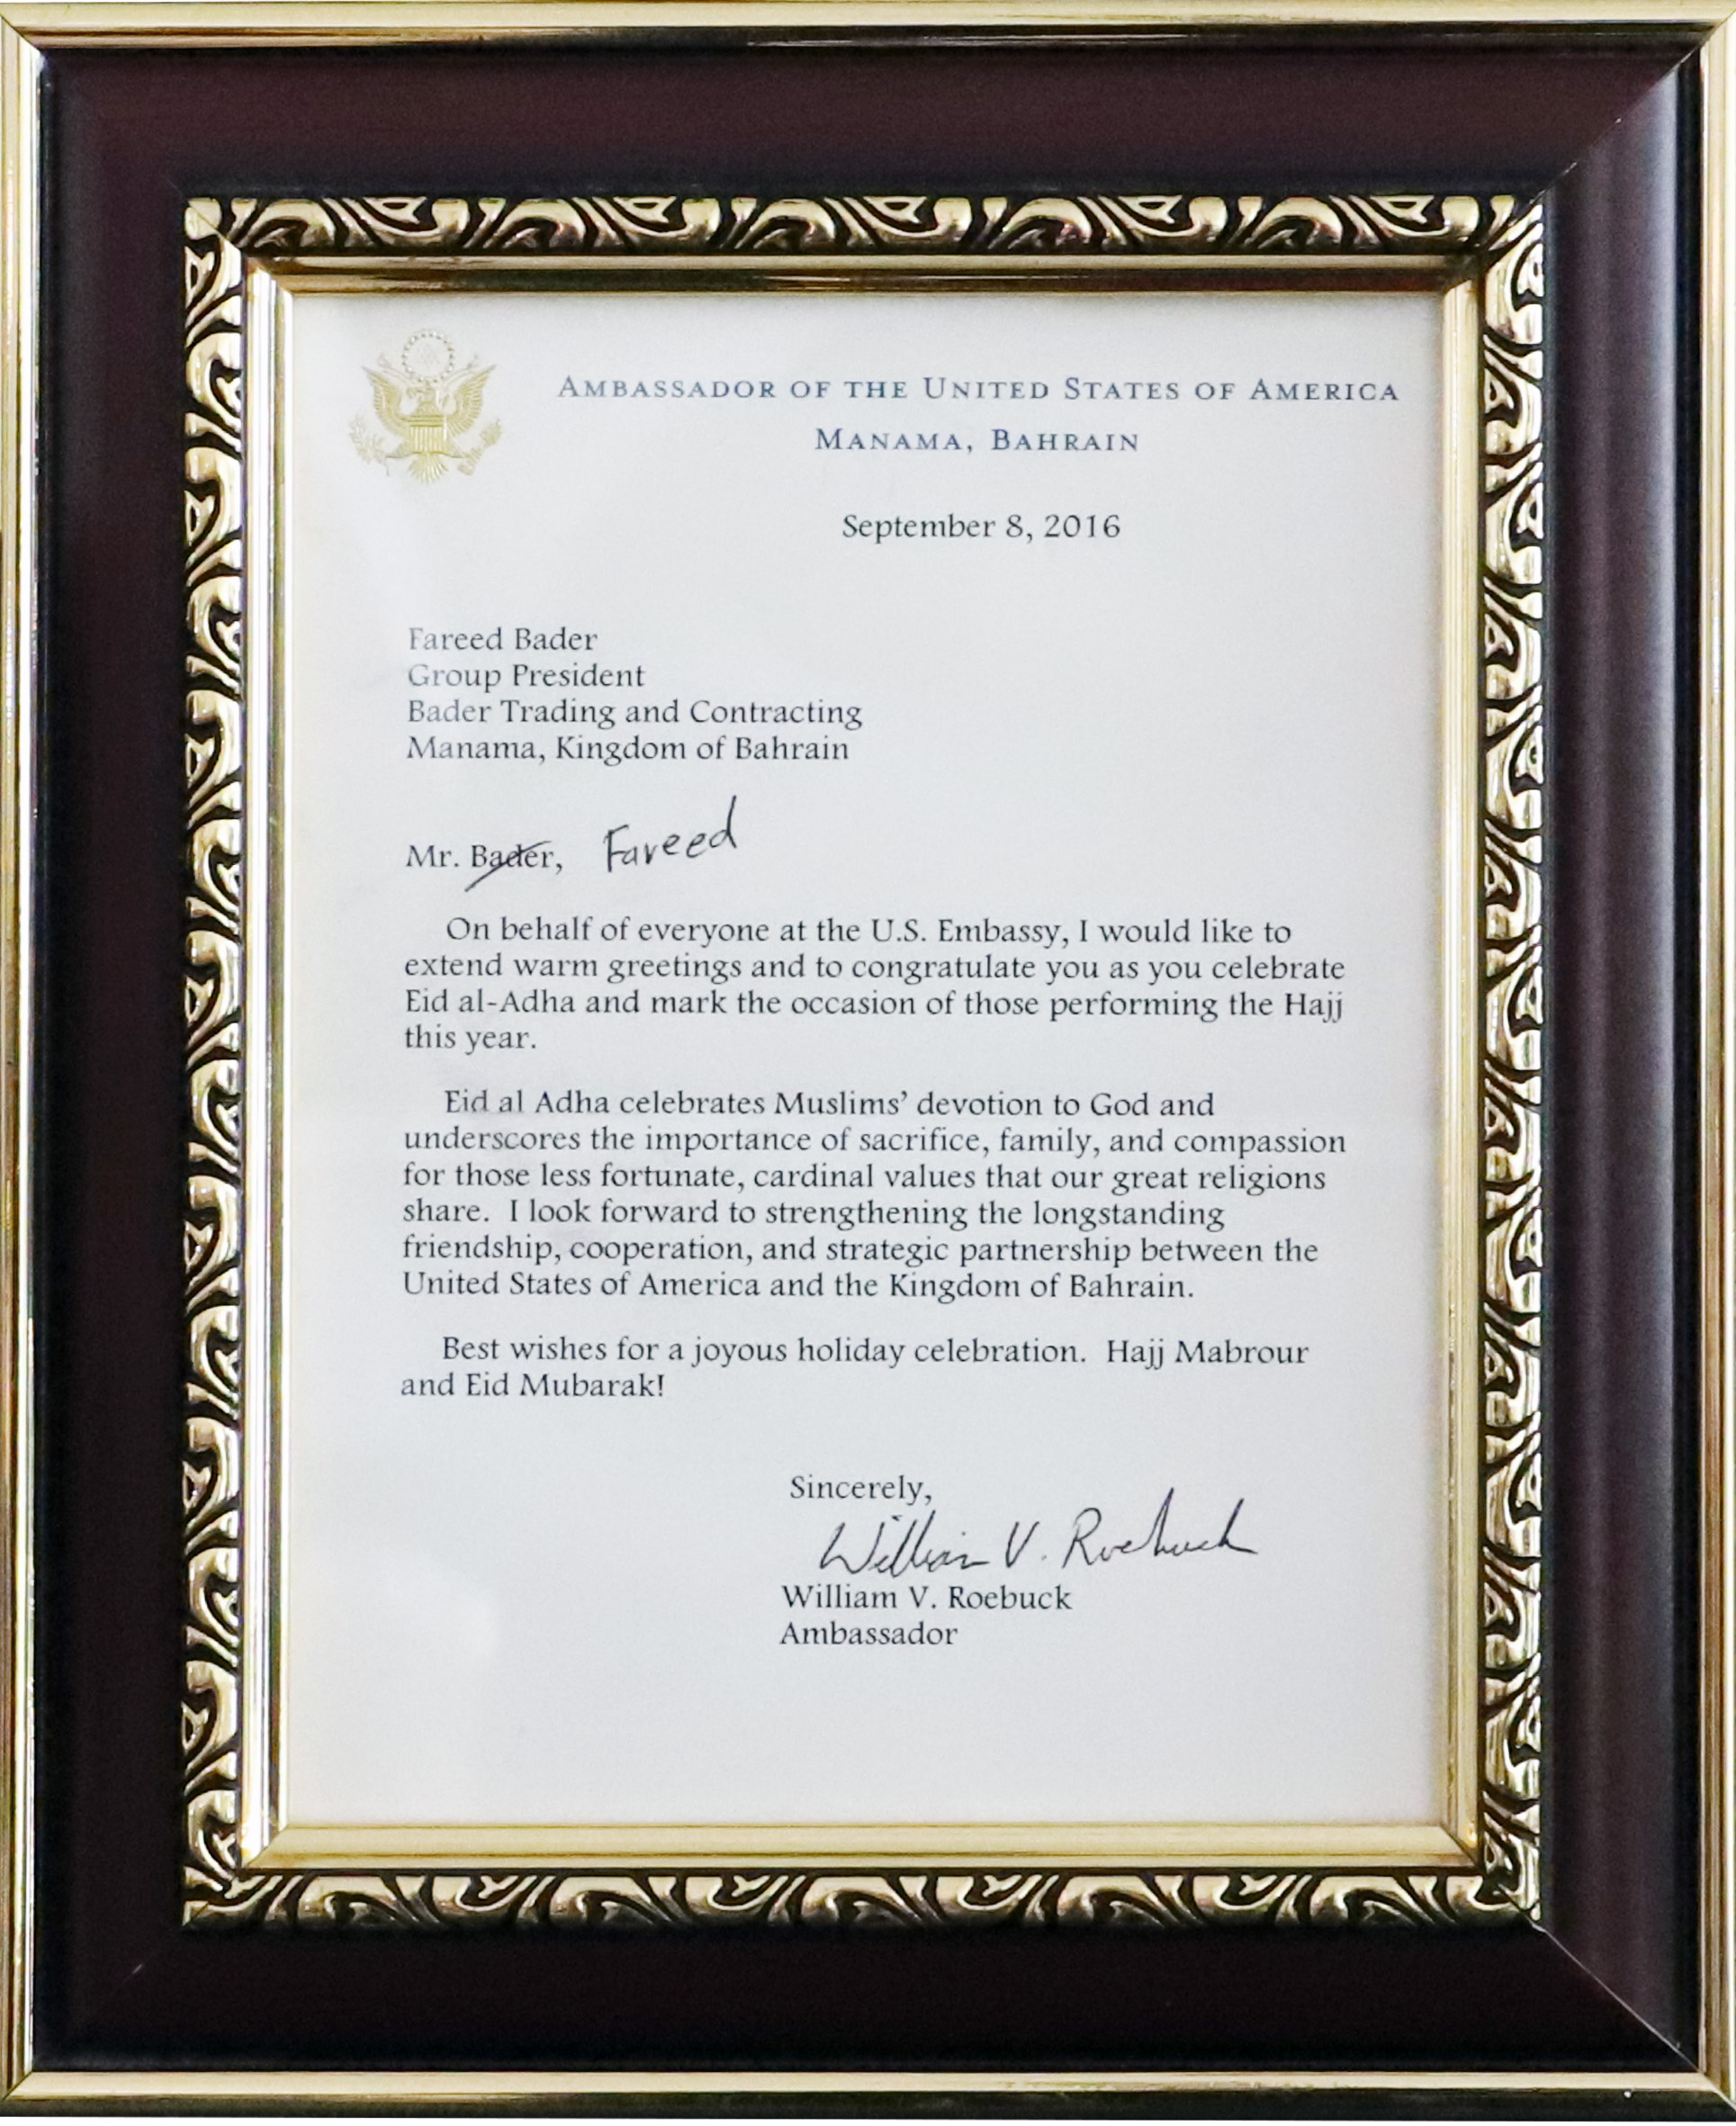 AMBASSADOR OF THE UNITED STATES OF AMERICA
MANAMA, BAHRAIN
September 8, 2016
Fareed Bader
Group President
Bader Trading and Contracting
Manama, Kingdom of Bahrain
Mr. Bader, Fareed
On behalf of everyone at the U.S. Embassy, I would like to
extend warm greetings and to congratulate you as you celebrate
Eid al-Adha and mark the occasion of those performing the Hajj
this year.
Eid al Adha celebrates Muslims’ devotion to God and
underscores the importance of sacrifice, family, and compassion
for those less fortunate, cardinal values that our great religions
share.  I look forward to strengthening the longstanding
friendship, cooperation, and strategic partnership between the
United States of America and the Kingdom of Bahrain.
Best wishes for a joyous holiday celebration.  Hajj Mabrour
and Eid Mubarak!
Sincerely,
William V. Roebuck
William V. Roebuck
Ambassador